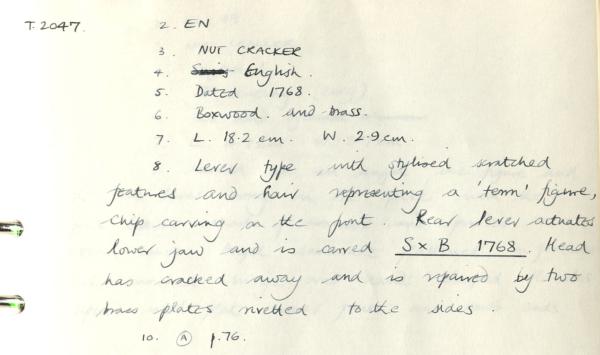 T.2047. 2. EN
3. NUT CRACKER
4. Swiss English.
5. Dated 1768.
6. Boxwood. and brass.
7. L. 18.2 cm. W. 2.9 cm.
8. Lever type with stylised scratched
features and hair representing a 'term' figure,
chip carving on the front. Rear lever actuates
lower jaw and is carved S x B 1768. Head
has cracked away and is repaired by two
brass plates rivetted to the sides.
10. A p.76.